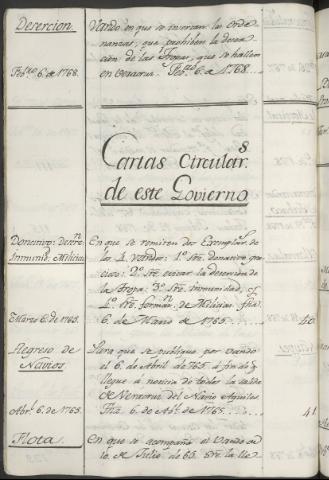 Desercion
Vando en que se insertan las orde
nanzas, que prohiben la deser
cion de las Tropas, que se hallen
en Veracruz. Feb.ro 6. de 1768.
Feb.ro 6. de 1768.
Cartas Circular.s
de este Govierno
Donativo: Deser.n
Inmunid. Milicias
En que se remiten dos Exemplar.s
de los 4 Vandos: 1.º sre. donativo gra
cioso: 2.º sre. evitar la desercion de
la Tropa: 3.º sre. inmunidad, y
4.º sre. forma.n de Milicias. Fha.
6. de Marzo de 1765.
Marzo 6. de 1765.
40
Regreso de
Navios
Para que se publique por Vando
el 6. de Abril de 765. à fin de q.e
llegue à noticia de todos la salida
de Veracruz del Navio Aquiles.
Fha. 6. de Ab.l de 1765.
Abr.l 6. de 1765.
41
Flota.
En que se acompaña el Vando de
10. de Julio de 65. sre. la lle